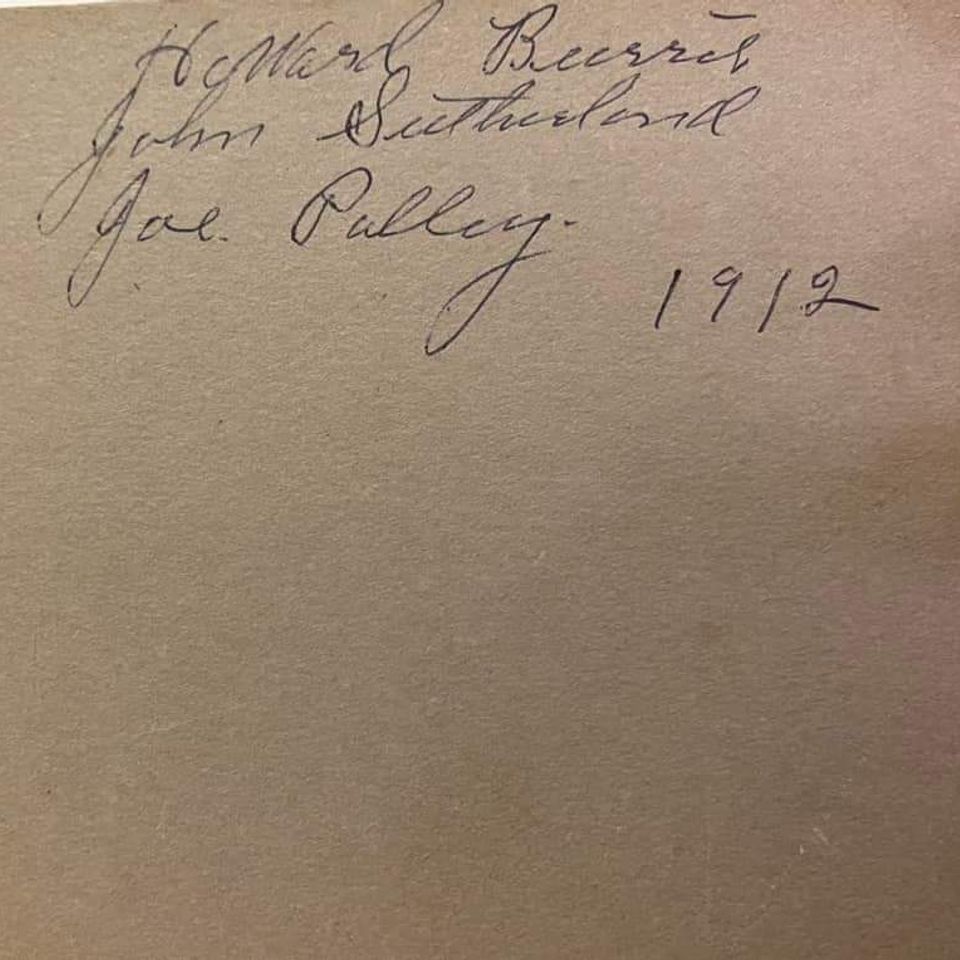 Howard Burris
John Sutherland
Joe. Polley.
1912